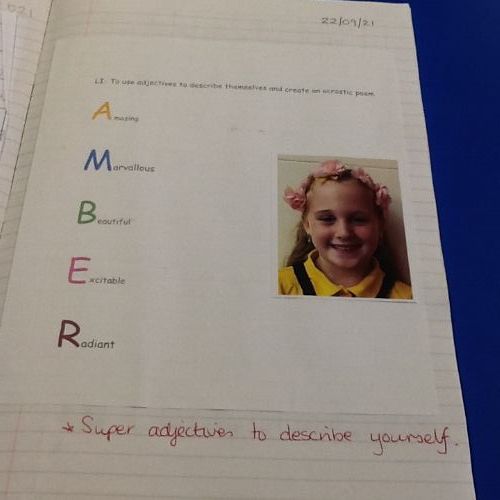 22/09/21
LI: To use adjectives to describe themselves and create an acrostic poem.
Amazing
Marvallous
Beautiful
Excitable
Radiant
* Super adjectives to describe yourself.